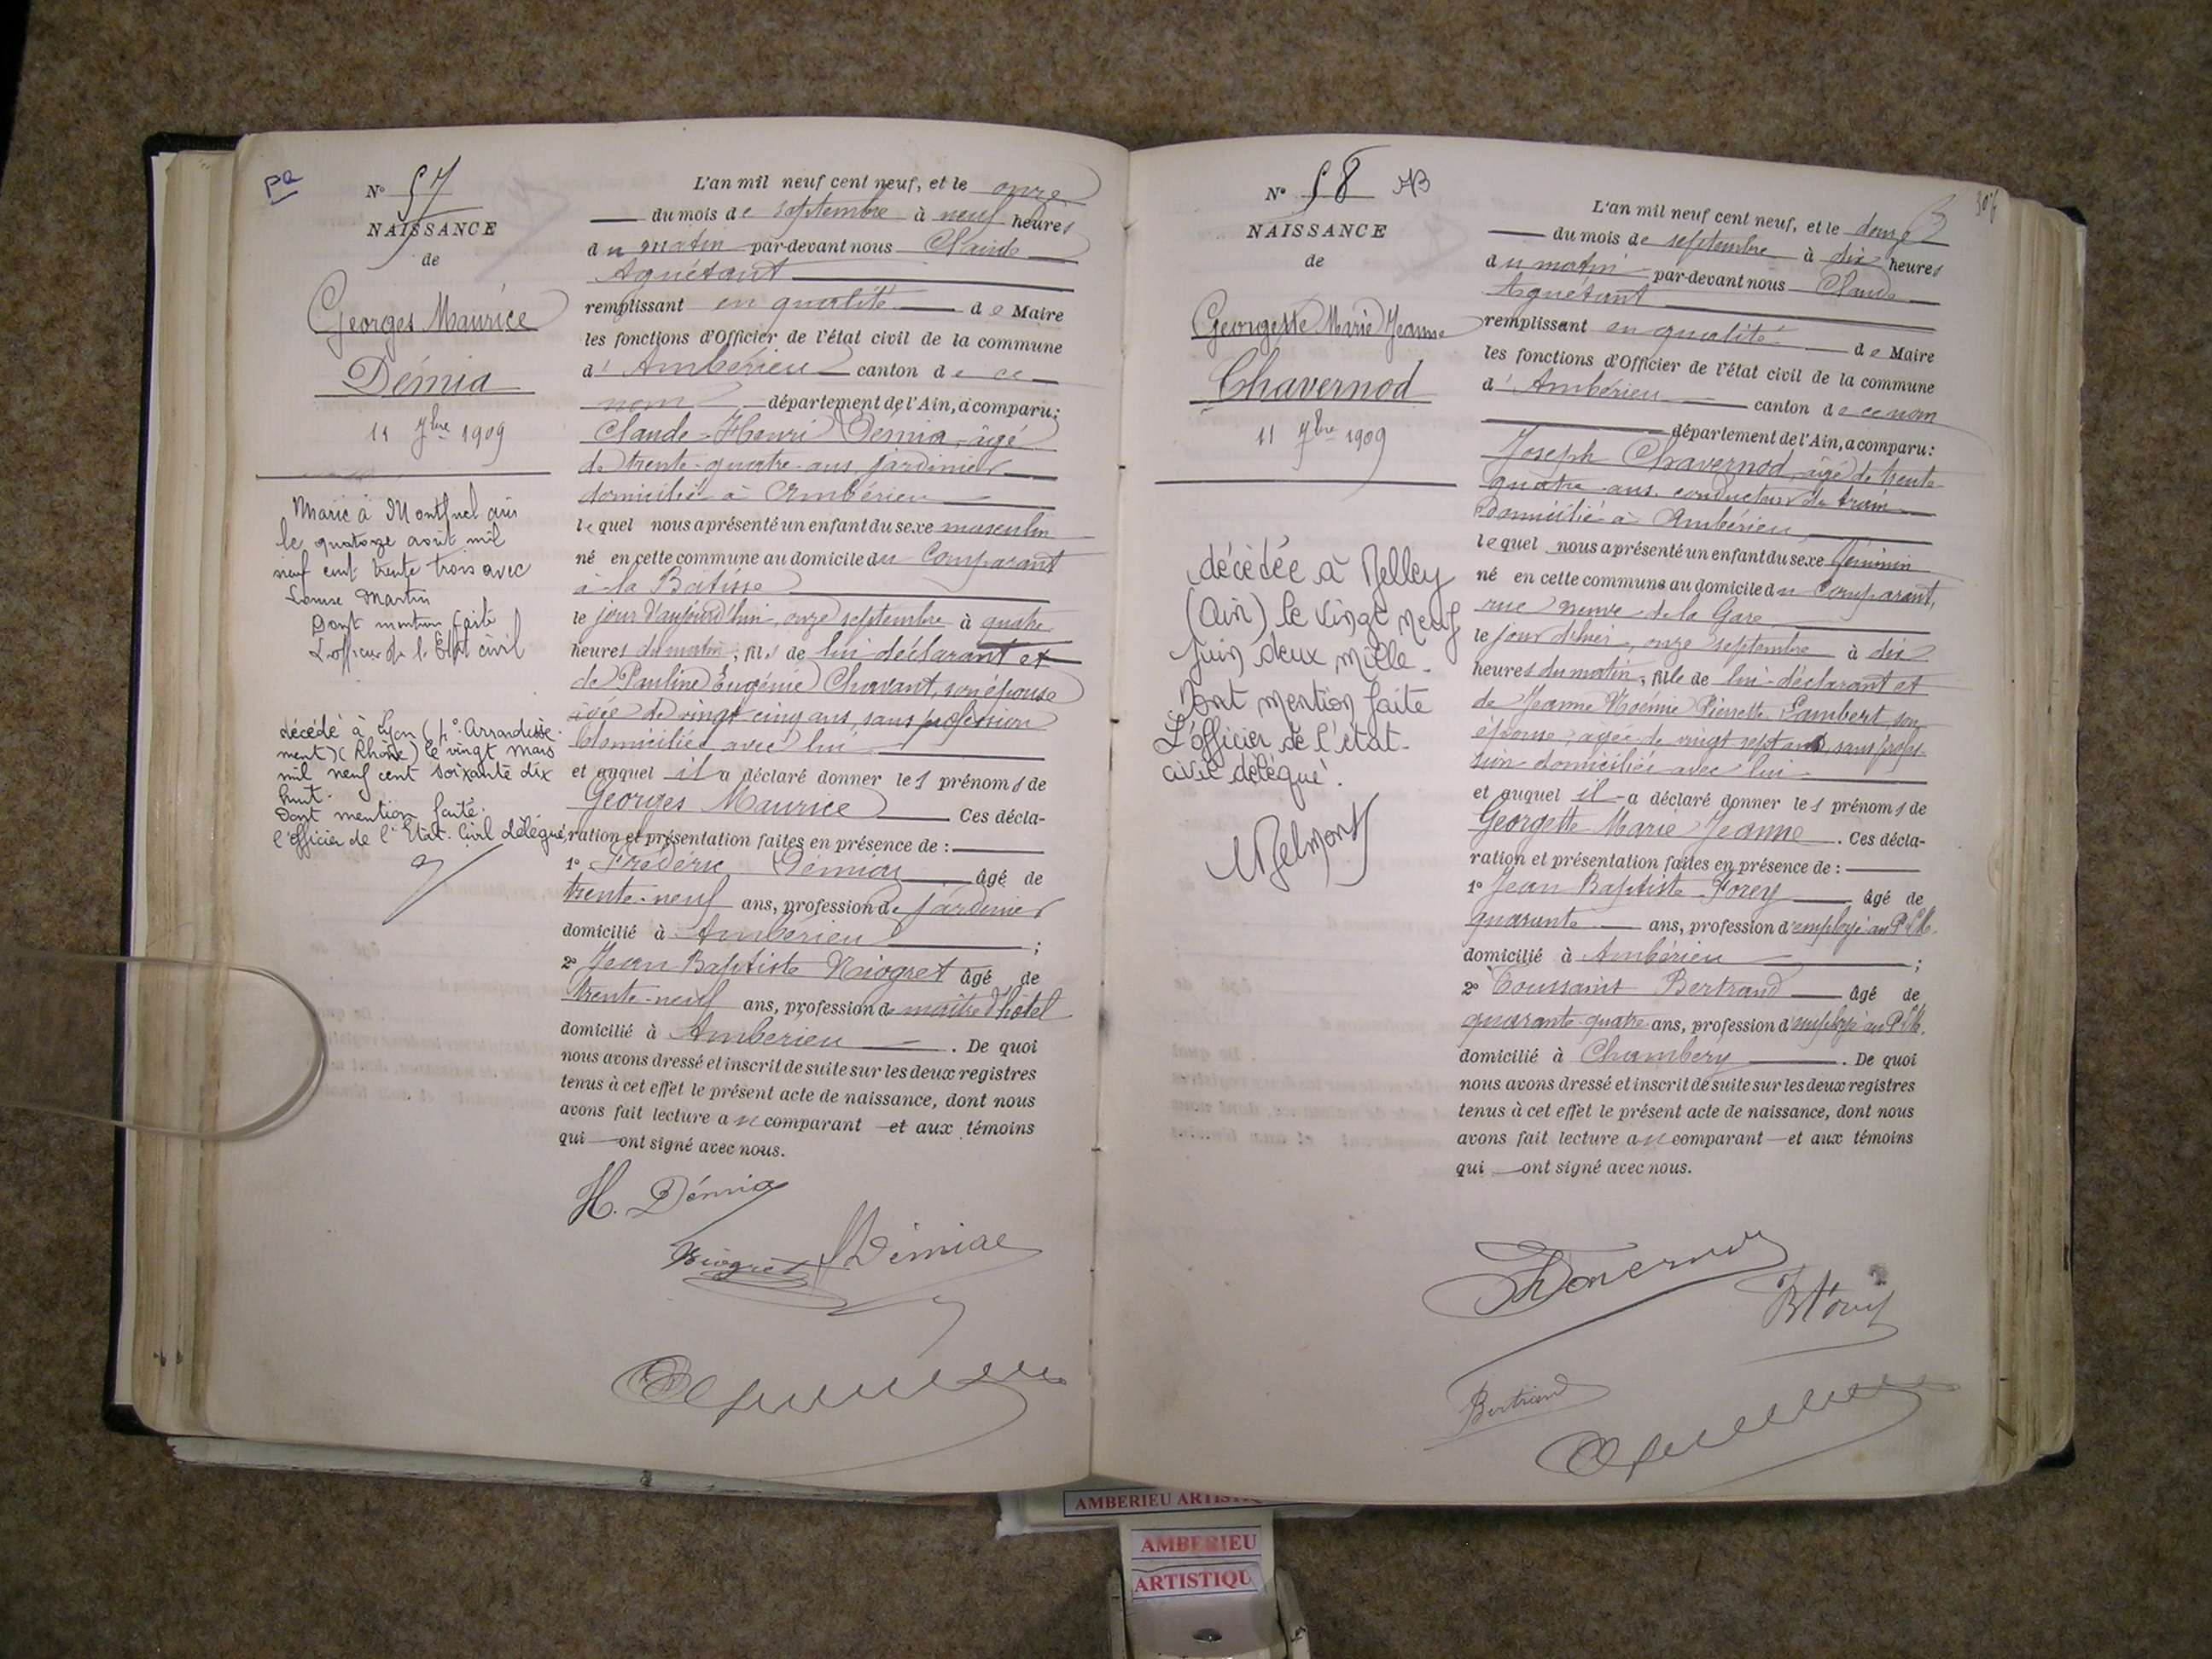 pa
N° 57
NAISSANCE
de
Georges Maurice
Démia
11 7bre 1909
Marié à Montluel ain
le quatorze août mil
neuf cent trente trois avec
Louise Martin
Dont mention faite
L'officier de l'Etat civil
décédé à Lyon (4° Arrondisse-
ment) (Rhône) le vingt mars
mil neuf cent soixante dix
huit.
Dont mention faite.
l'officier de l'Etat-Civil délégué,
L'an mil neuf cent neuf, et le onze
du mois de septembre à neuf heures
du matin par-devant nous Claude
Aguétant
remplissant en qualité de Maire
les fonctions d'Officier de l'état civil de la commune
d' Ambérieu canton de ce
nom département de l'Ain, a comparu:
Claude-Henri Démia, âgé
de trente-quatre ans, jardinier
domicilié à Ambérieu
lequel nous a présenté un enfant du sexe masculin
né en cette commune au domicile du Comparant
à la Batisse
le jour d'aujourd'hui, onze septembre à quatre
heures du matin; fils de lui déclarant et
de Pauline Eugénie Chavant, son épouse
âgée de vingt cinq ans, sans profession
domiciliée avec lui
et auquel il a déclaré donner les prénoms de
Georges Maurice Ces décla-
ration et présentation faites en présence de :
1° Frédéric Démia âgé de
trente-neuf ans, profession de jardinier
domicilié à Ambérieu ;
2° Jean Baptiste Niogret âgé de
trente-neuf ans, profession de maître d'hôtel
domicilié à Ambérieu . De quoi
nous avons dressé et inscrit de suite sur les deux registres
tenus à cet effet le présent acte de naissance, dont nous
avons fait lecture au comparant et aux témoins
qui ont signé avec nous.
H. Démia
Niogret Démia
N° 58 AB
NAISSANCE
de
Georgette Marie Jeanne
Chavernod
11 7bre 1909
décédée à Belley
(Ain) le vingt neuf
juin deux mille.
Dont mention faite
L'officier de l'état-
civil délégué.
Belmont
306
L'an mil neuf cent neuf, et le douze
du mois de septembre à dix heures
du matin par-devant nous Claude
Aguétant
remplissant en qualité de Maire
les fonctions d'Officier de l'état civil de la commune
d' Ambérieu canton de ce nom
département de l'Ain, a comparu:
Joseph Chavernod, âgé de trente
quatre ans, conducteur de train
domicilié à Ambérieu
lequel nous a présenté un enfant du sexe féminin
né en cette commune au domicile du Comparant,
rue neuve de la Gare
le jour d'hier, onze septembre à dix
heures du matin, fille de lui-déclarant et
de Jeanne Noémie Pierrette Lambert, son
épouse, âgée de vingt sept ans, sans profes-
sion domiciliée avec lui
et auquel il a déclaré donner les prénoms de
Georgette Marie Jeanne . Ces décla-
ration et présentation faites en présence de :
1° Jean Baptiste Forey âgé de
quarante ans, profession d'employé au P.L.M.
domicilié à Ambérieu ;
2° Toussaint Bertrand âgé de
quarante-quatre ans, profession d'employé au P.L.M.
domicilié à Chambéry . De quoi
nous avons dressé et inscrit de suite sur les deux registres
tenus à cet effet le présent acte de naissance, dont nous
avons fait lecture au comparant et aux témoins
qui ont signé avec nous.
Bertrand
AMBERIEU
AMBERIEU
ARTISTIQU